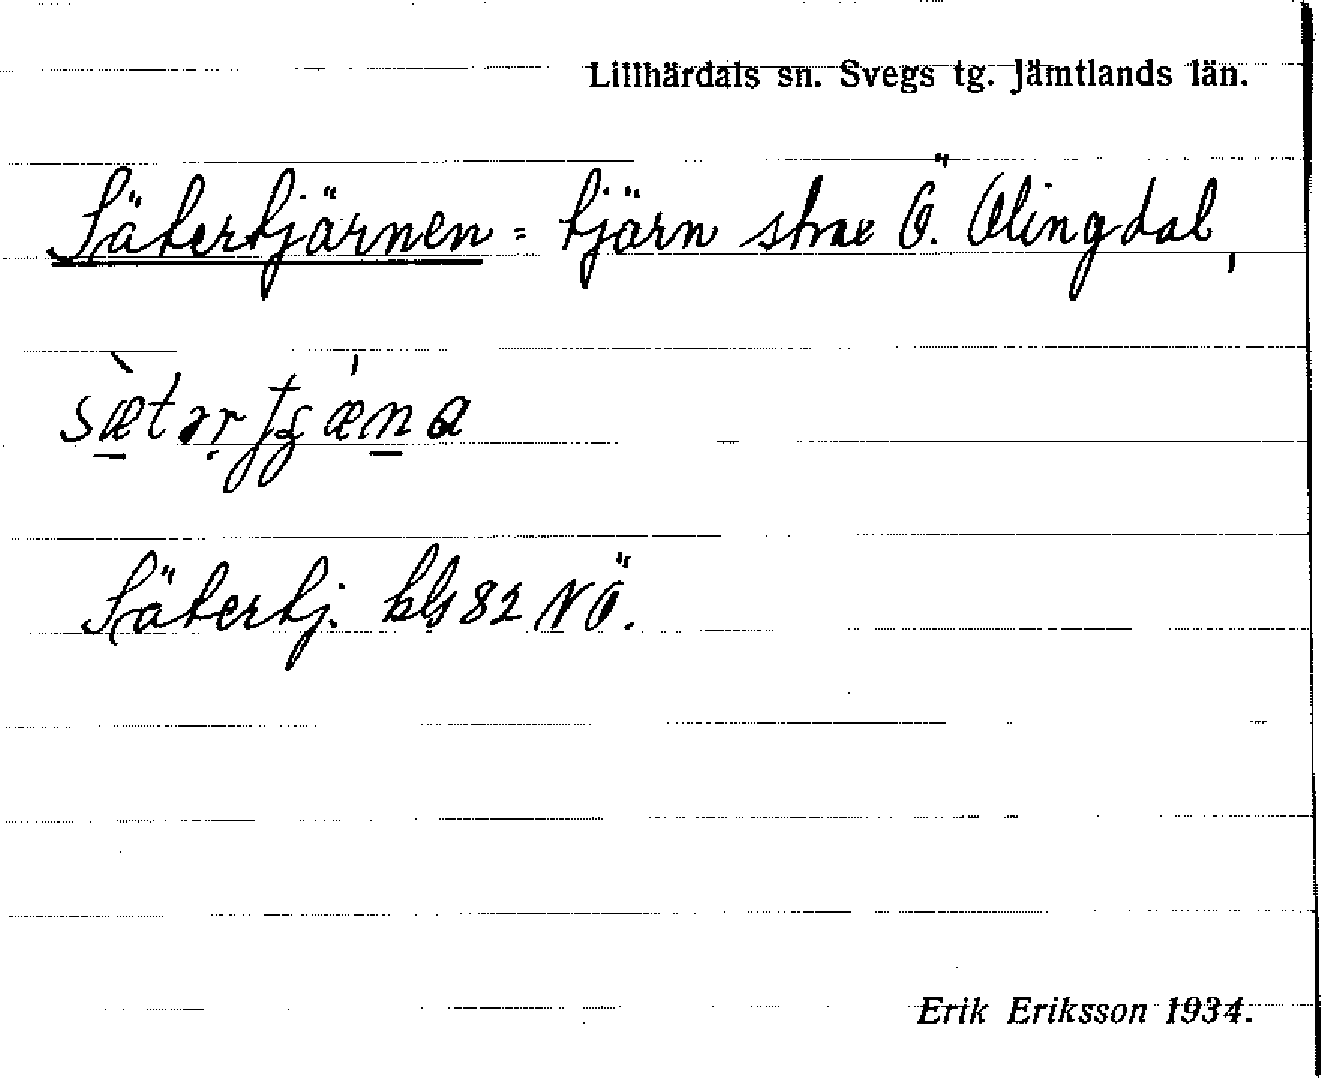 Lillhärdals sn. Svegs tg. Jämtlands län.
Sätertjärnen = tjärn strax Ö. Olingdal,
Sätertj. bl 82 NÖ.
Erik Eriksson 1934.